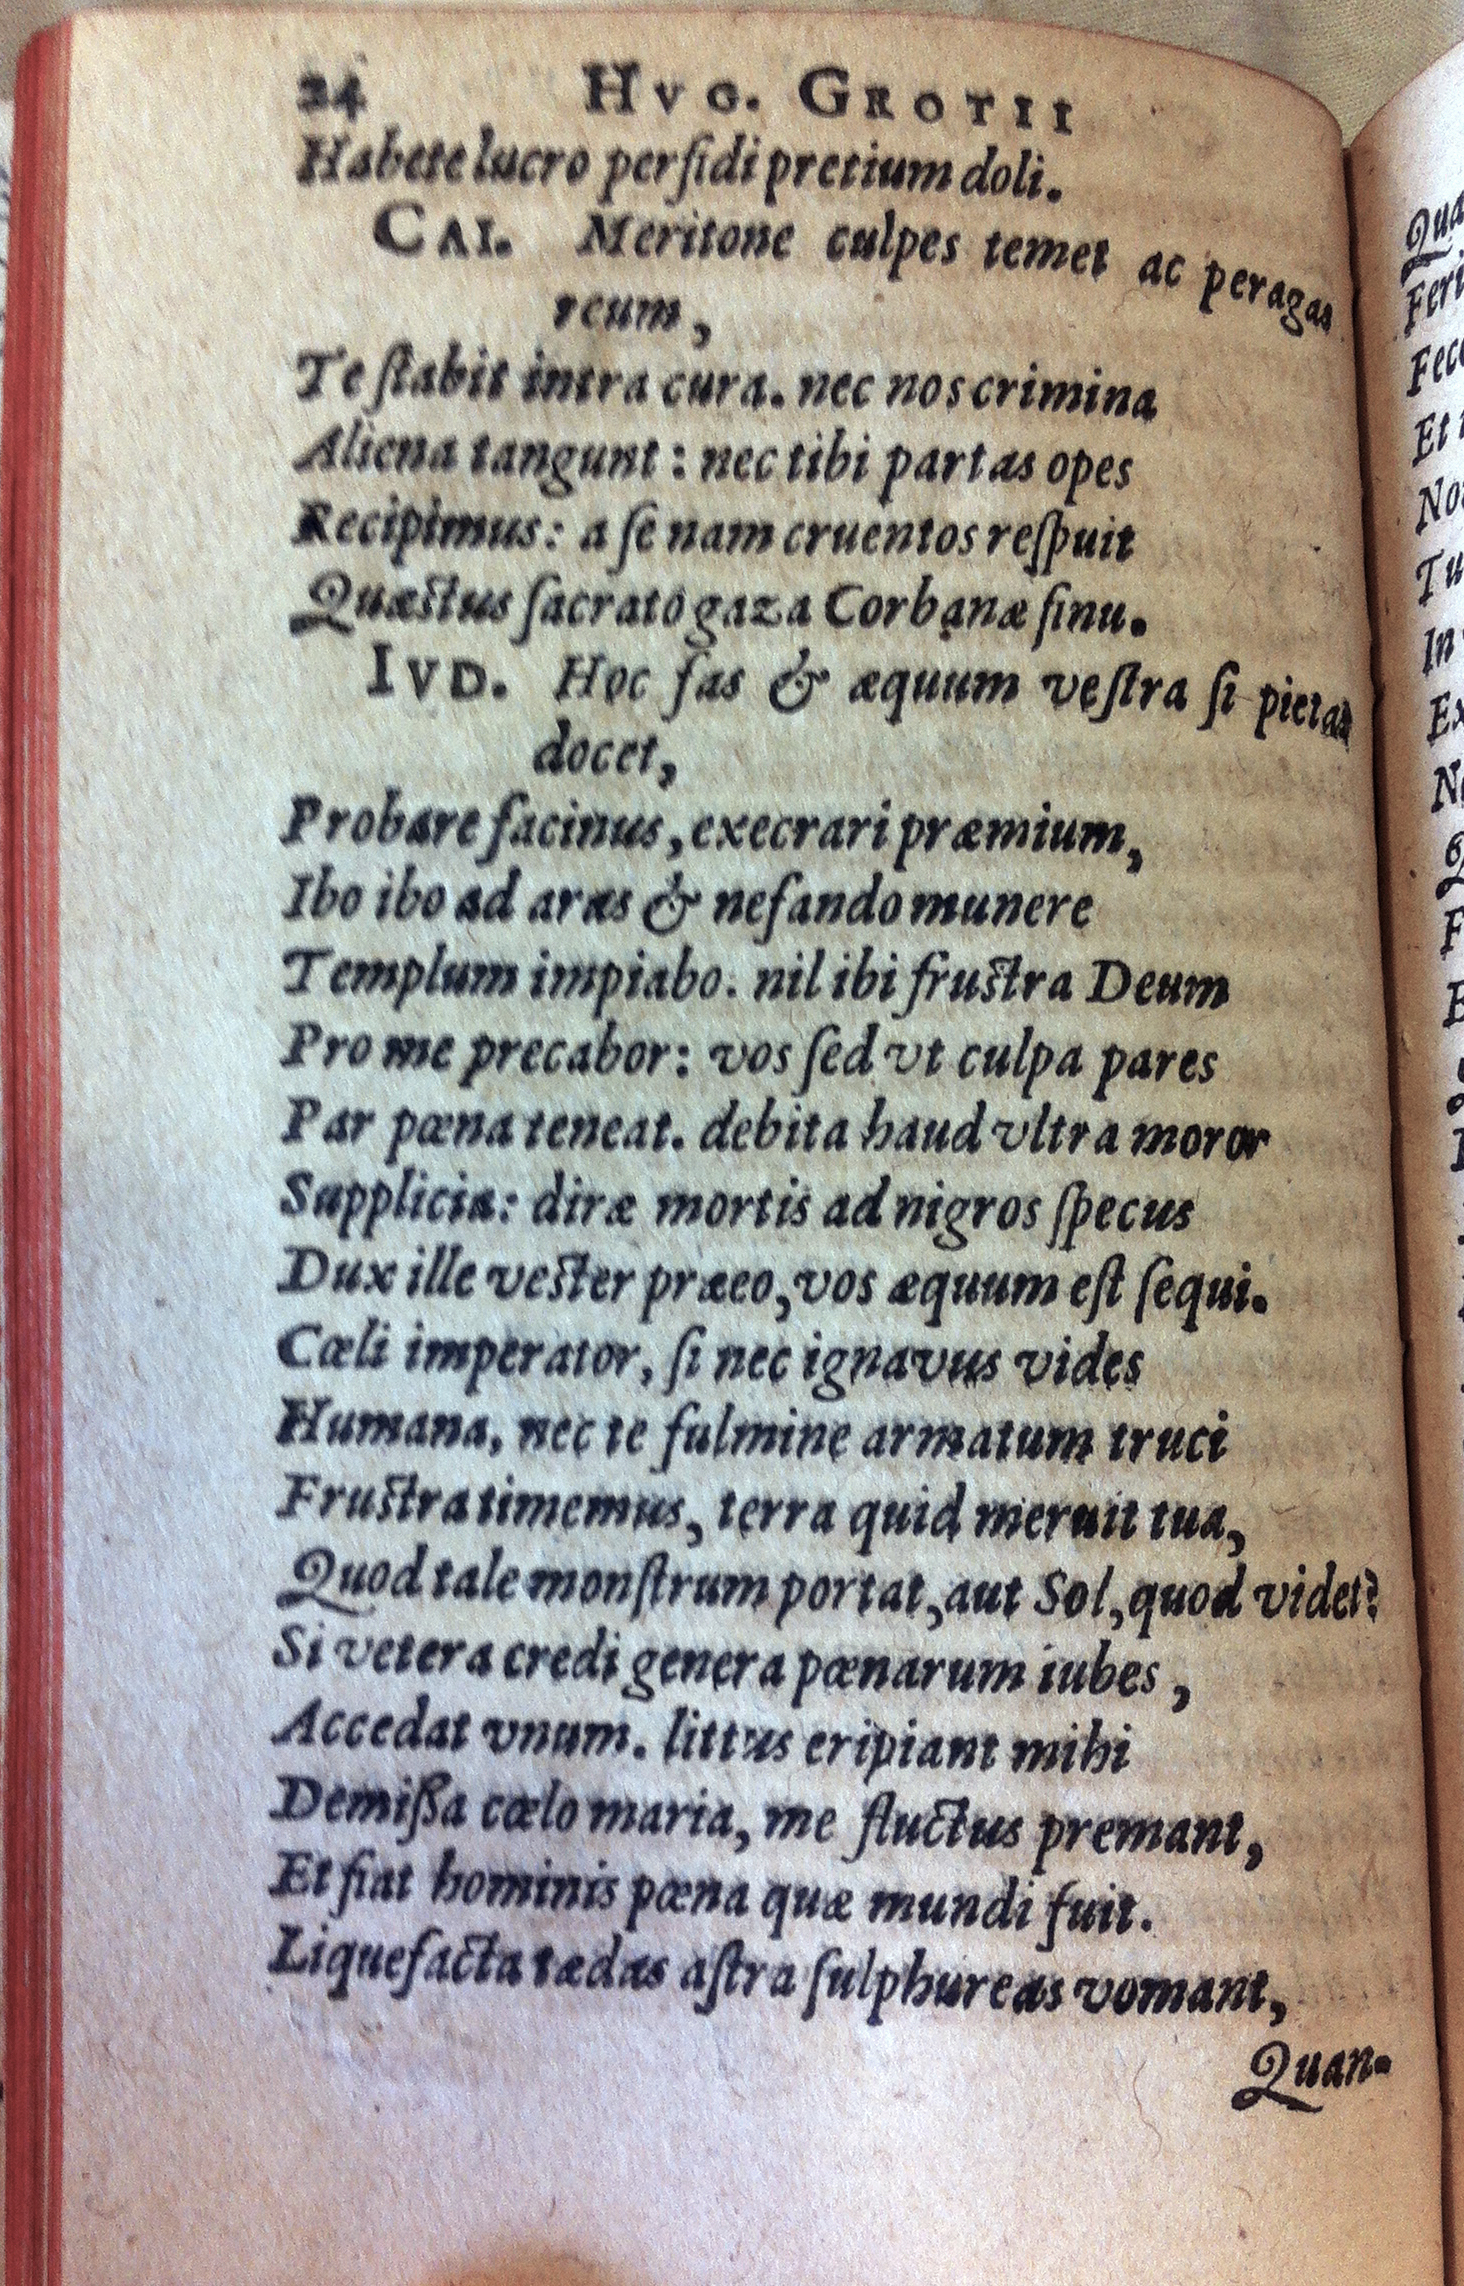 24 HVG. GROTII
Habete lucro perfidi pretium doli.
CAI. Meritone culpes temet ac peragas
reum,
Te ſtabit intra cura. nec nos crimina
Aliena tangunt: nec tibi partas opes
Recipimus: a ſe nam cruentos reſpuit
Quæstus ſacrato gaza Corbanæ ſinu.
IVD. Hoc fas & æquum veſtra ſi pietas
docet,
Probare facinus, execrari præmium,
Ibo ibo ad aras & nefando munere
Templum impiabo. nil ibi frustra Deum
Pro me precabor: vos ſed vt culpa pares
Par pœna teneat. debita haud vltra moror
Supplicia: diræ mortis ad nigros ſpecus
Dux ille vester præeo, vos æquum eſt ſequi.
Cœli imperator, ſi nec ignavus vides
Humana, nec te fulmine armatum truci
Frustra timemus, terra quid meruit tua,
Quod tale monſtrum portat, aut Sol, quod videt?
Si vetera credi genera pœnarum iubes,
Accedat vnum. littus eripiant mihi
Demiſſa cœlo maria, me fluctus premant,
Et fiat hominis pœna quæ mundi fuit.
Liquefacta tædas aſtra ſulphureas vomant,
Quan-
Qua
Feri
Et
Tu
In
Ex